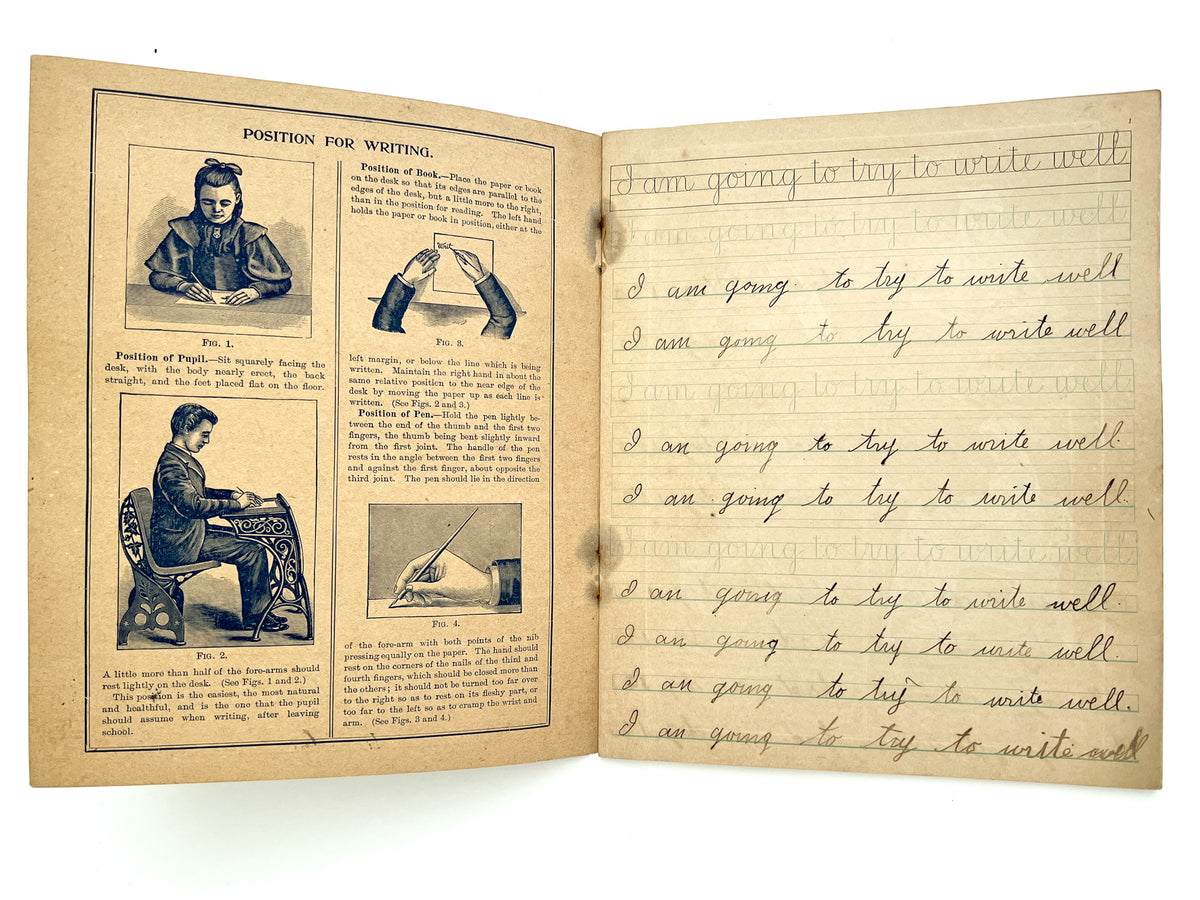 POSITION FOR WRITING.
FIG. 1.
Position of Pupil.—Sit squarely facing the
desk, with the body nearly erect, the back
straight, and the feet placed flat on the floor.
FIG. 2.
A little more than half of the fore-arms should
rest lightly on the desk. (See Figs. 1 and 2.)
This position is the easiest, the most natural
and healthful, and is the one that the pupil
should assume when writing, after leaving
school.
Position of Book.—Place the paper or book
on the desk so that its edges are parallel to the
edges of the desk, but a little more to the right,
than in the position for reading. The left hand
holds the paper or book in position, either at the
Writ
FIG. 3.
left margin, or below the line which is being
written. Maintain the right hand in about the
same relative position to the near edge of the
desk by moving the paper up as each line is
written. (See Figs. 2 and 3.)
Position of Pen.—Hold the pen lightly be-
tween the end of the thumb and the first two
fingers, the thumb being bent slightly inward
from the first joint. The handle of the pen
rests in the angle between the first two fingers
and against the first finger, about opposite the
third joint. The pen should lie in the direction
FIG. 4.
of the fore-arm with both points of the nib
pressing equally on the paper. The hand should
rest on the corners of the nails of the third and
fourth fingers, which should be closed more than
the others; it should not be turned too far over
to the right so as to rest on its fleshy part, or
too far to the left so as to cramp the wrist and
arm. (See Figs. 3 and 4.)
1
I am going to try to write well
I am going to try to write well
I am going to try to write well
I am going to try to write well
I am going to try to write well
I an going to try to write well.
I an going to try to write well.
I am going to try to write well
I an going to try to write well.
I an going to try to write well.
I an going to try to write well.
I an going to try to write well